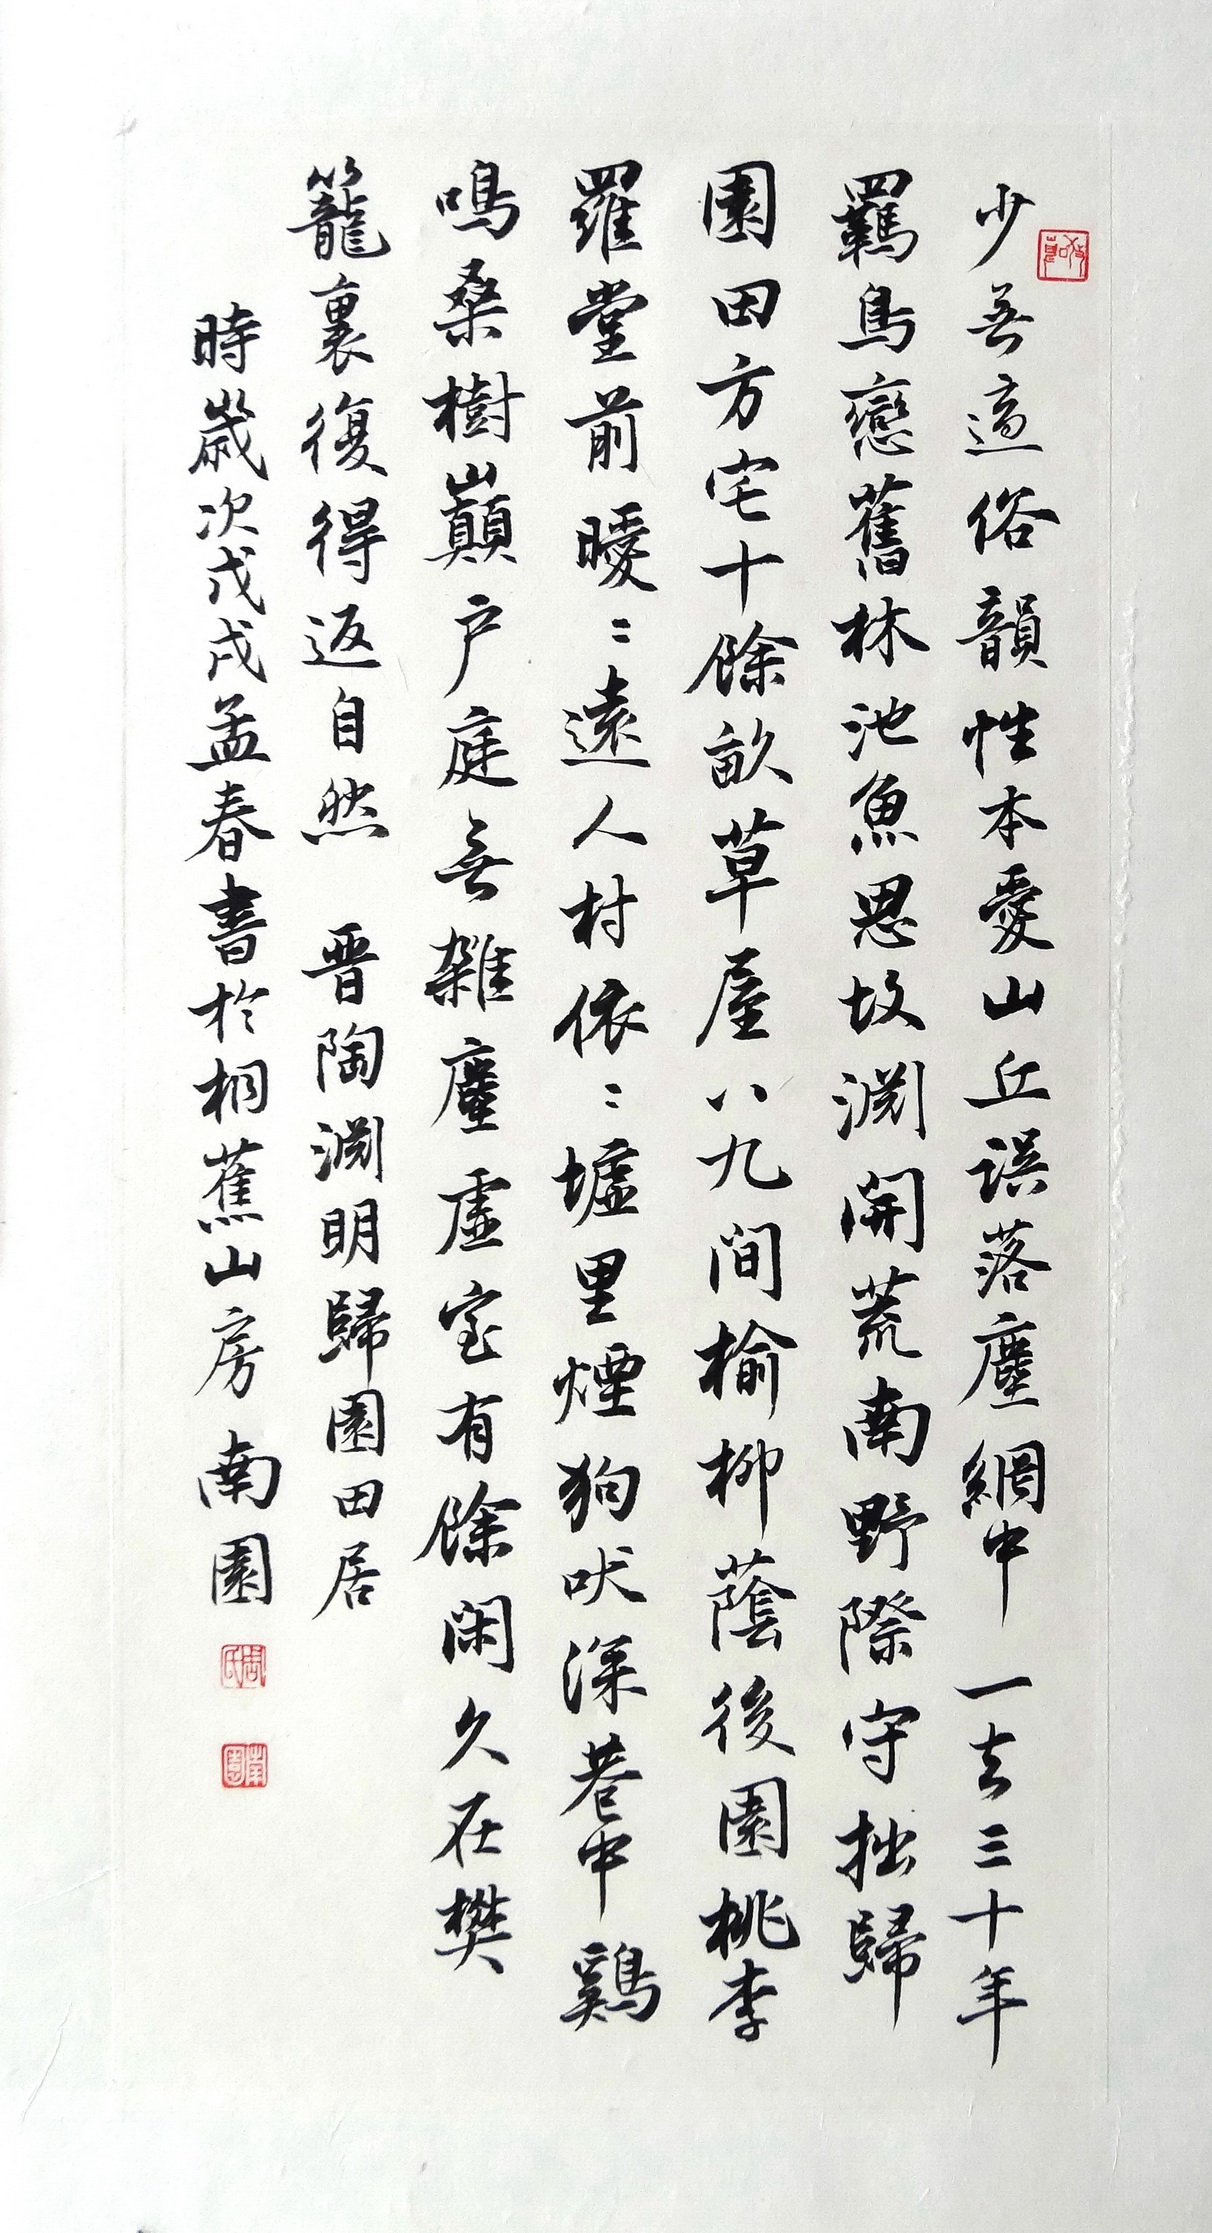 少無適俗韻性本愛山丘誤落塵網中一去三十年
羈鳥戀舊林池魚思故淵開荒南野際守拙歸
園田方宅十餘畝草屋八九間榆柳蔭後園桃李
羅堂前曖〻遠人村依〻墟里煙狗吠深巷中鷄
鳴桑樹巔户庭無雜塵虛室有餘閑久在樊
籠裏復得返自然 晋陶淵明歸園田居
時歲次戊戌孟春書於桐蕉山房南園
周氏
南園